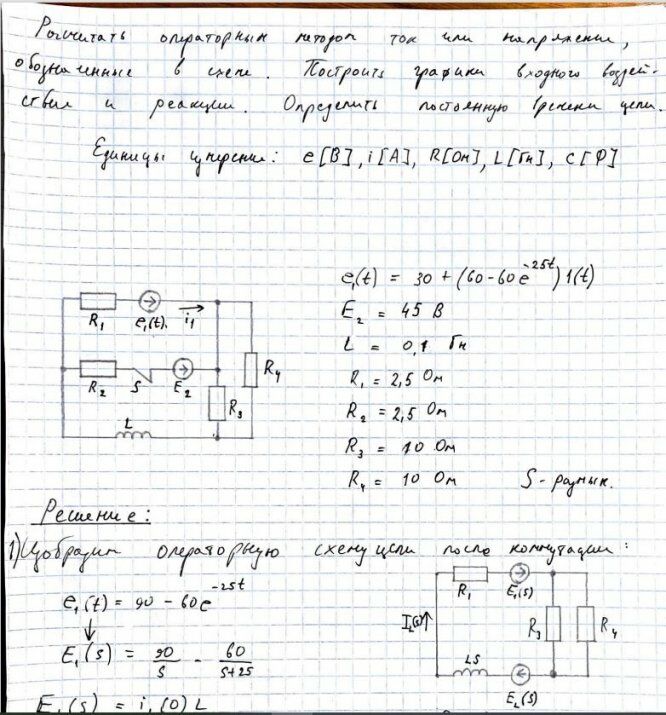 Рассчитать операторным методом ток или напряжение,
обозначенные в схеме. Построить графики входного воздей-
ствия и реакции. Определить постоянную времени цепи.
Единицы измерения: e[В], i[А], R[Ом], L[Гн], C[Ф]
e₁(t) = 30 + (60-60e^-25t)1(t)
E₂ = 45 В
L = 0,1 Гн
R₁ = 2,5 Ом
R₂ = 2,5 Ом
R₃ = 10 Ом
R₄ = 10 Ом
S - размык.
R₁
e₁(t).
i₁
R₂
S
E₂
R₃
R₄
L
Решение:
1) Изобразим операторную схему цепи после коммутации:
e₁(t) = 90 - 60e^-25t
E₁(s) = 90/s - 60/(s+25)
R₁
E₁(s)
I_L(s)
R₃
R₄
LS
E_L(s)
E_L(s) = i_L(0) L